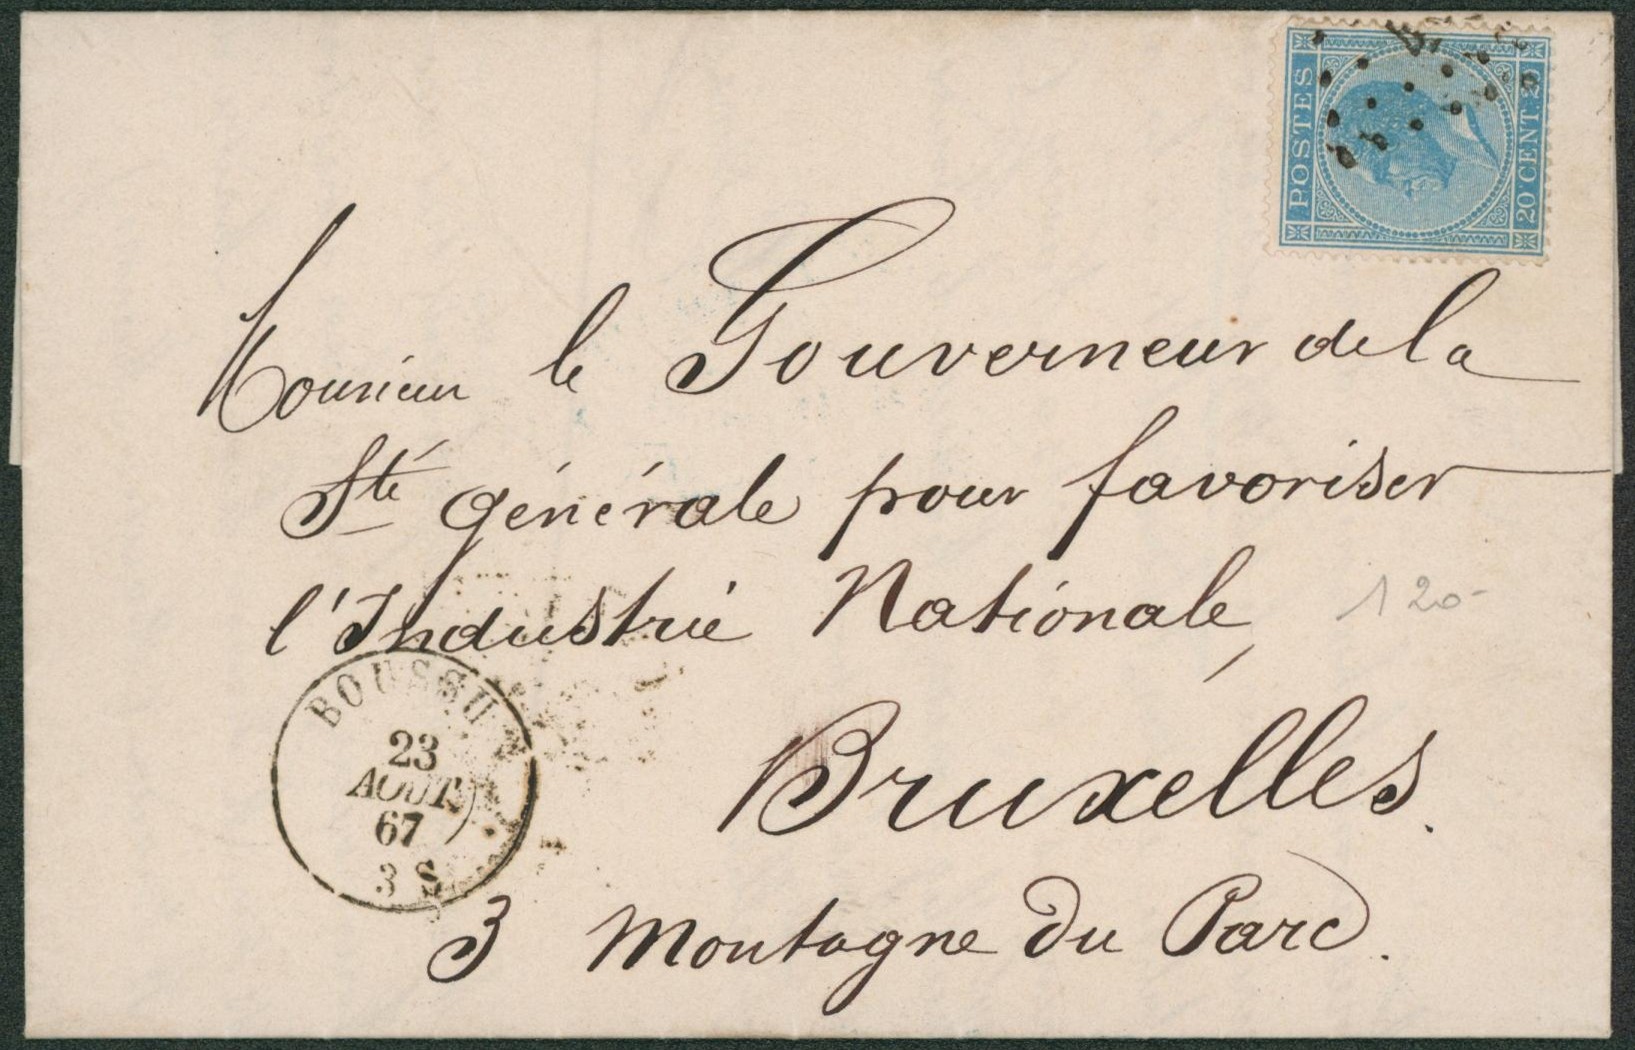 POSTES
20 CENT. 20
Monsieur le Gouverneur de la
Sté générale pour favoriser
l'Industrie Nationale,
120-
BOUSSU
23
AOUT
67
3 S
Bruxelles.
3 Montagne du Parc.